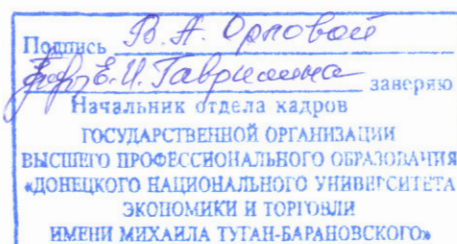 Подпись В.А. Орловой
Е.И. Гаврилина заверяю
Начальник отдела кадров
ГОСУДАРСТВЕННОЙ ОРГАНИЗАЦИИ
ВЫСШЕГО ПРОФЕССИОНАЛЬНОГО ОБРАЗОВАНИЯ
«ДОНЕЦКОГО НАЦИОНАЛЬНОГО УНИВЕРСИТЕТА
ЭКОНОМИКИ И ТОРГОВЛИ
ИМЕНИ МИХАИЛА ТУГАН-БАРАНОВСКОГО»